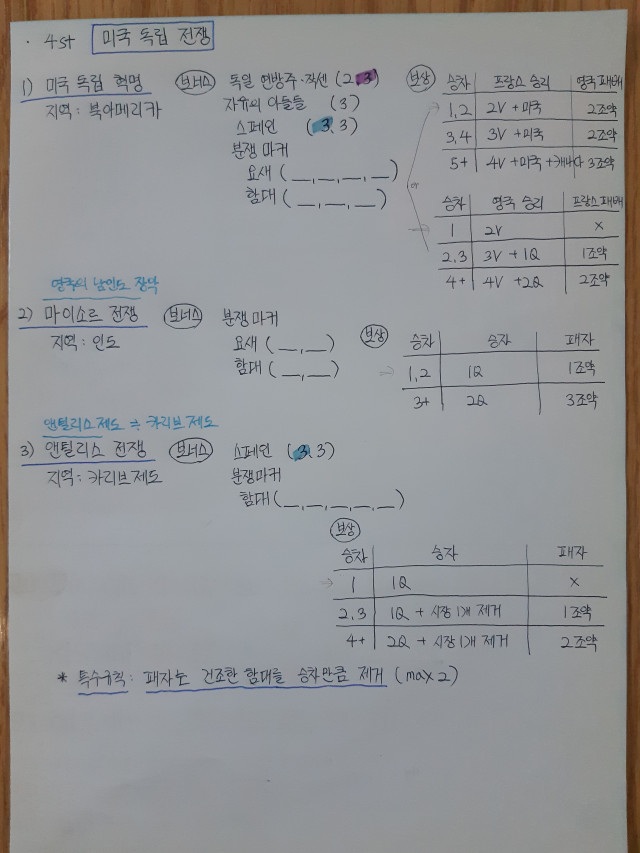 · 4st 미국 독립 전쟁
1) 미국 독립 혁명 보너스 독일 연방주·작센 (2, 3)
지역: 북아메리카
자유의 아들들 (3)
스페인 (3, 3)
분쟁 마커
요새 ( __, __, __, __ )
함대 ( __, __, __ )
보상
승차 프랑스 승리 영국 패배
1,2 2V + 미국 2조약
3,4 3V + 미국 2조약
5+ 4V + 미국 + 캐나다 3조약
or
승차 영국 승리 프랑스 패배
1 2V X
2,3 3V + 1Q 1조약
4+ 4V + 2Q 2조약
영국의 남인도 장악
2) 마이소르 전쟁 보너스 분쟁 마커
지역: 인도
요새 ( __, __ )
함대 ( __, __ )
보상
승차 승자 패자
1,2 1Q 1조약
3+ 2Q 3조약
앤틸리스 제도 = 카리브 제도
3) 앤틸리스 전쟁 보너스 스페인 (3, 3)
지역: 카리브 제도
분쟁마커
함대 ( __, __, __, __, __ )
보상
승차 승자 패자
1 1Q X
2,3 1Q + 시장 1개 제거 1조약
4+ 2Q + 시장 1개 제거 2조약
* 특수규칙: 패자는 건조한 함대를 승차만큼 제거 (max 2)